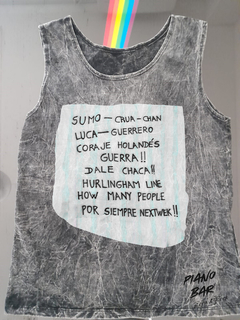 SUMO — CRUA-CHAN
LUCA — GUERRERO
CORAJE HOLANDÉS
GUERRA!!
DALE CHACA!!
HURLINGHAM LINE
HOW MANY PEOPLE
POR SIEMPRE NEXTWEK!!
PIANO
BAR